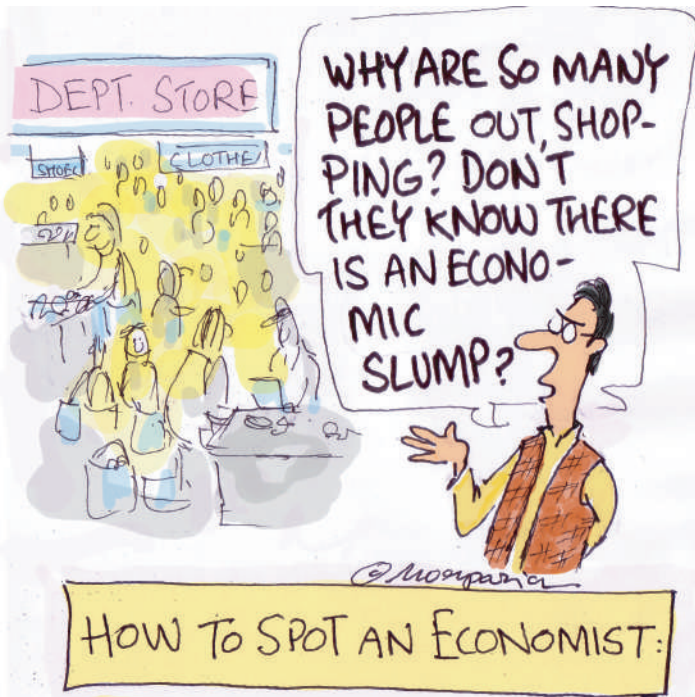 DEPT. STORE
SHOES
CLOTHE
WHY ARE SO MANY
PEOPLE OUT, SHOP-
PING? DON'T
THEY KNOW THERE
IS AN ECONO-
MIC
SLUMP?
© Morparia
HOW TO SPOT AN ECONOMIST: